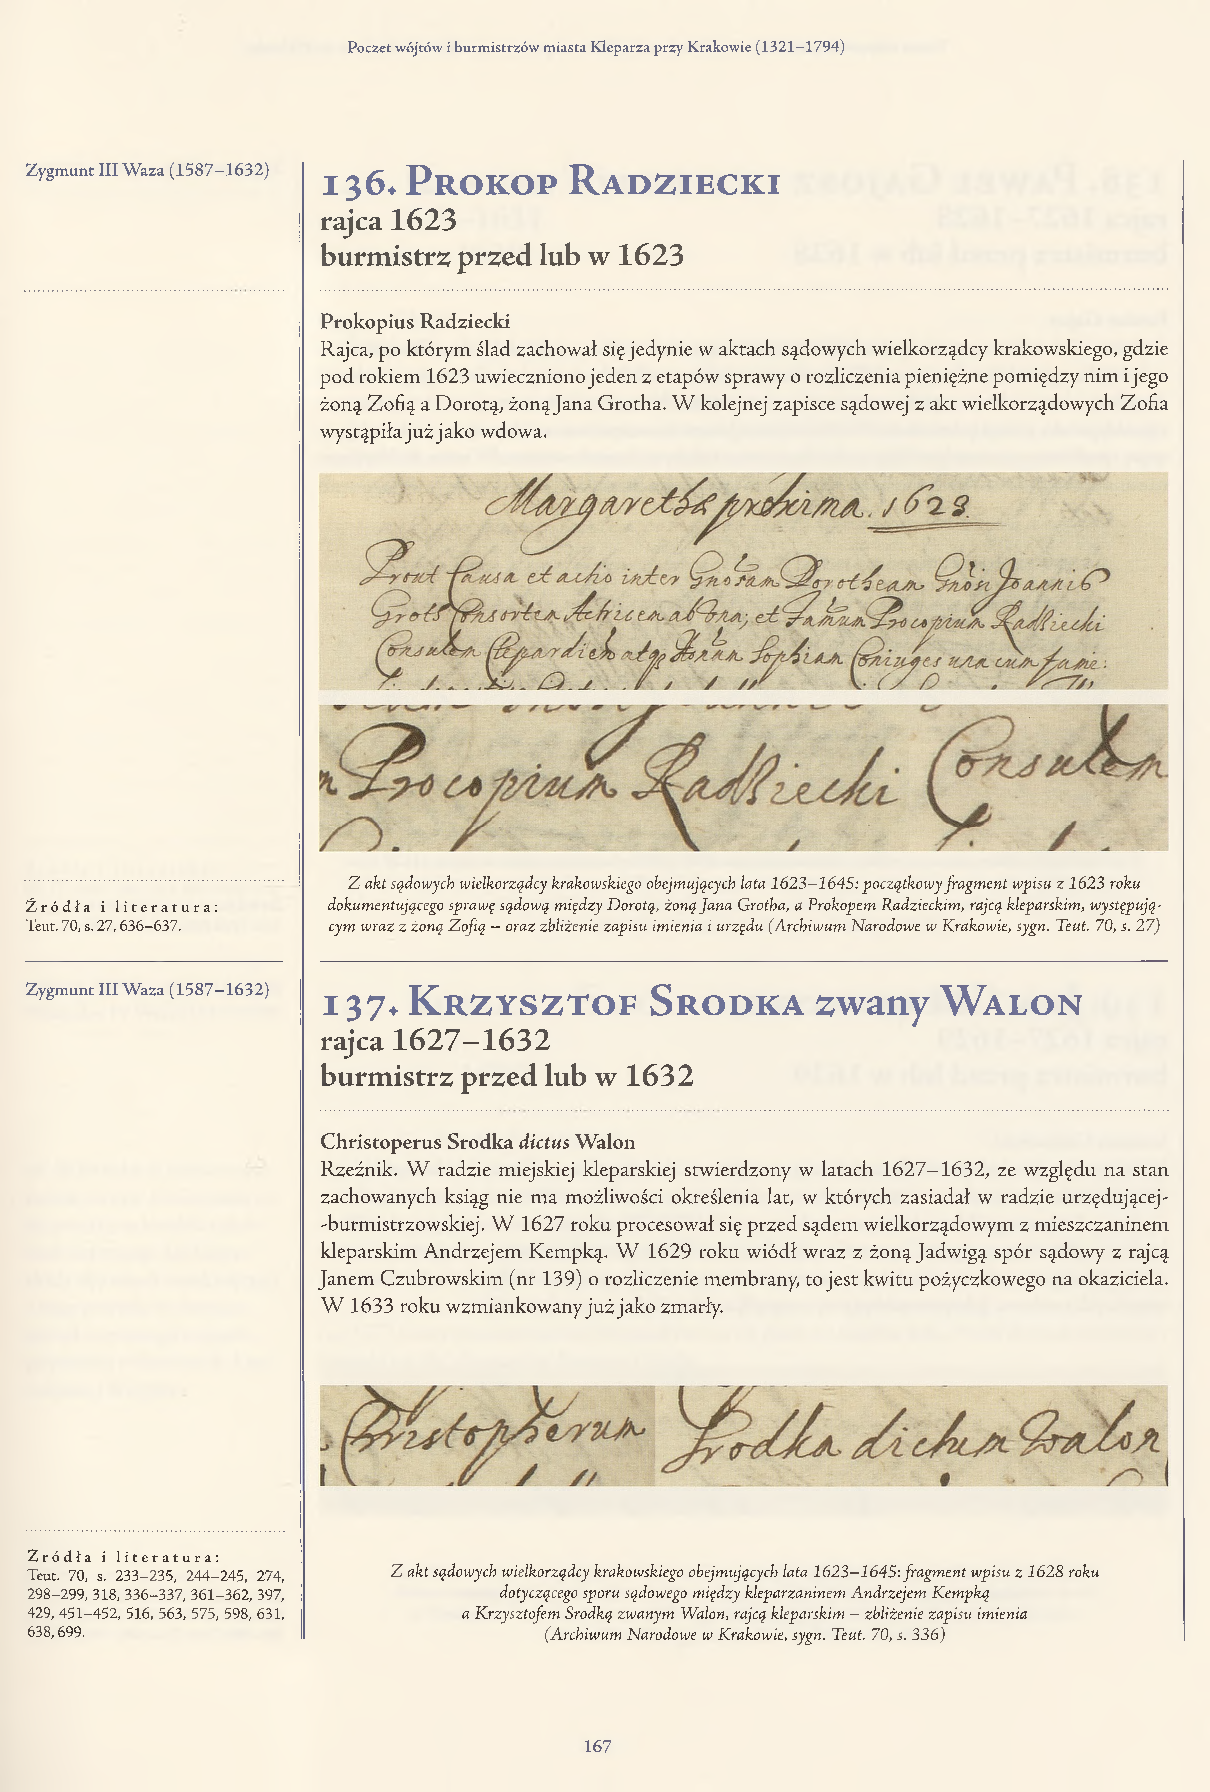 Poczet wójtów i burmistrzów miasta Kleparza przy Krakowie (1321–1794)
Zygmunt III Waza (1587–1632)
136. Prokop Radziecki
rajca 1623
burmistrz przed lub w 1623
Prokopius Radziecki
Rajca, po którym ślad zachował się jedynie w aktach sądowych wielkorządcy krakowskiego, gdzie
pod rokiem 1623 uwieczniono jeden z etapów sprawy o rozliczenia pieniężne pomiędzy nim i jego
żoną Zofią a Dorotą, żoną Jana Grotha. W kolejnej zapisce sądowej z akt wielkorządowych Zofia
wystąpiła już jako wdowa.
Margarethæ próxima. 1623.
Prout Causa et actio inter Gnosam Dorotheam Gnosi Joannis
Grots Consortem Actricem ab una; et Famum Procopium Radziecki
Consulem Clepardien atq Honan Sophiam Coniuges una cum fame:
Procopium Radziecki Consulem
Z akt sądowych wielkorządcy krakowskiego obejmujących lata 1623–1645: początkowy fragment wpisu z 1623 roku
dokumentującego sprawę sądową między Dorotą, żoną Jana Grotha, a Prokopem Radzieckim, rajcą kleparskim, występują-
cym wraz z żoną Zofią – oraz zbliżenie zapisu imienia i urzędu (Archiwum Narodowe w Krakowie, sygn. Teut. 70, s. 27)
Źródła i literatura:
Teut. 70, s. 27, 636–637.
Zygmunt III Waza (1587–1632)
137. Krzysztof Srodka zwany Walon
rajca 1627–1632
burmistrz przed lub w 1632
Christoperus Srodka dictus Walon
Rzeźnik. W radzie miejskiej kleparskiej stwierdzony w latach 1627–1632, ze względu na stan
zachowanych ksiąg nie ma możliwości określenia lat, w których zasiadał w radzie urzędującej-
-burmistrzowskiej. W 1627 roku procesował się przed sądem wielkorządowym z mieszczaninem
kleparskim Andrzejem Kempką. W 1629 roku wiódł wraz z żoną Jadwigą spór sądowy z rajcą
Janem Czubrowskim (nr 139) o rozliczenie membrany, to jest kwitu pożyczkowego na okaziciela.
W 1633 roku wzmiankowany już jako zmarły.
Christopherum Srodka dictum Walon
Źródła i literatura:
Teut. 70, s. 233–235, 244–245, 274,
298–299, 318, 336–337, 361–362, 397,
429, 451–452, 516, 563, 575, 598, 631,
638, 699.
Z akt sądowych wielkorządcy krakowskiego obejmujących lata 1623–1645: fragment wpisu z 1628 roku
dotyczącego sporu sądowego między kleparzaninem Andrzejem Kempką
a Krzysztofem Srodką zwanym Walon, rajcą kleparskim – zbliżenie zapisu imienia
(Archiwum Narodowe w Krakowie, sygn. Teut. 70, s. 336)
167